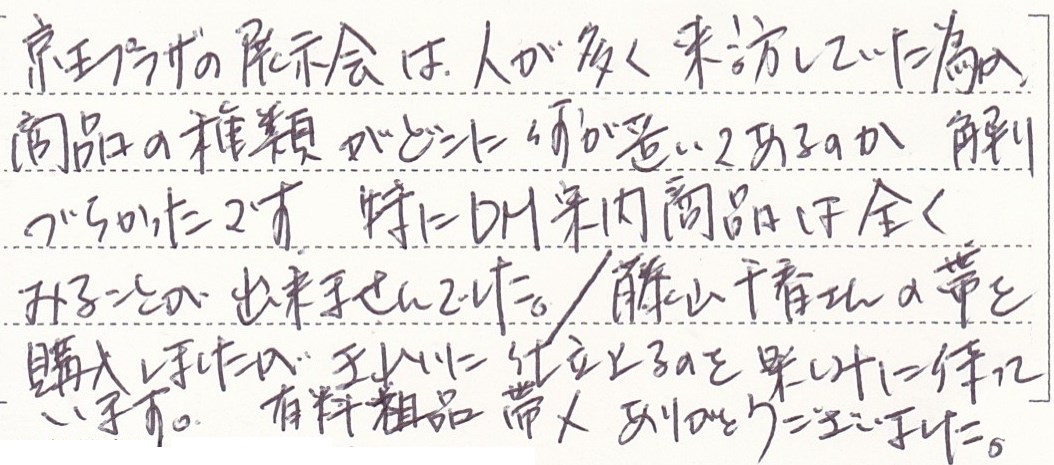 京王プラザの展示会は、人が多く来訪していた為か、
商品の種類がどこに何が置いてあるのか 解り
づらかったです 特にDM案内商品は全く
みることが出来ませんでした。/藤山千春さんの帯を
購入しましたが 手に 仕立上るのを楽しみに待って
います。 有料粗品 帯〆 ありがとうございました。